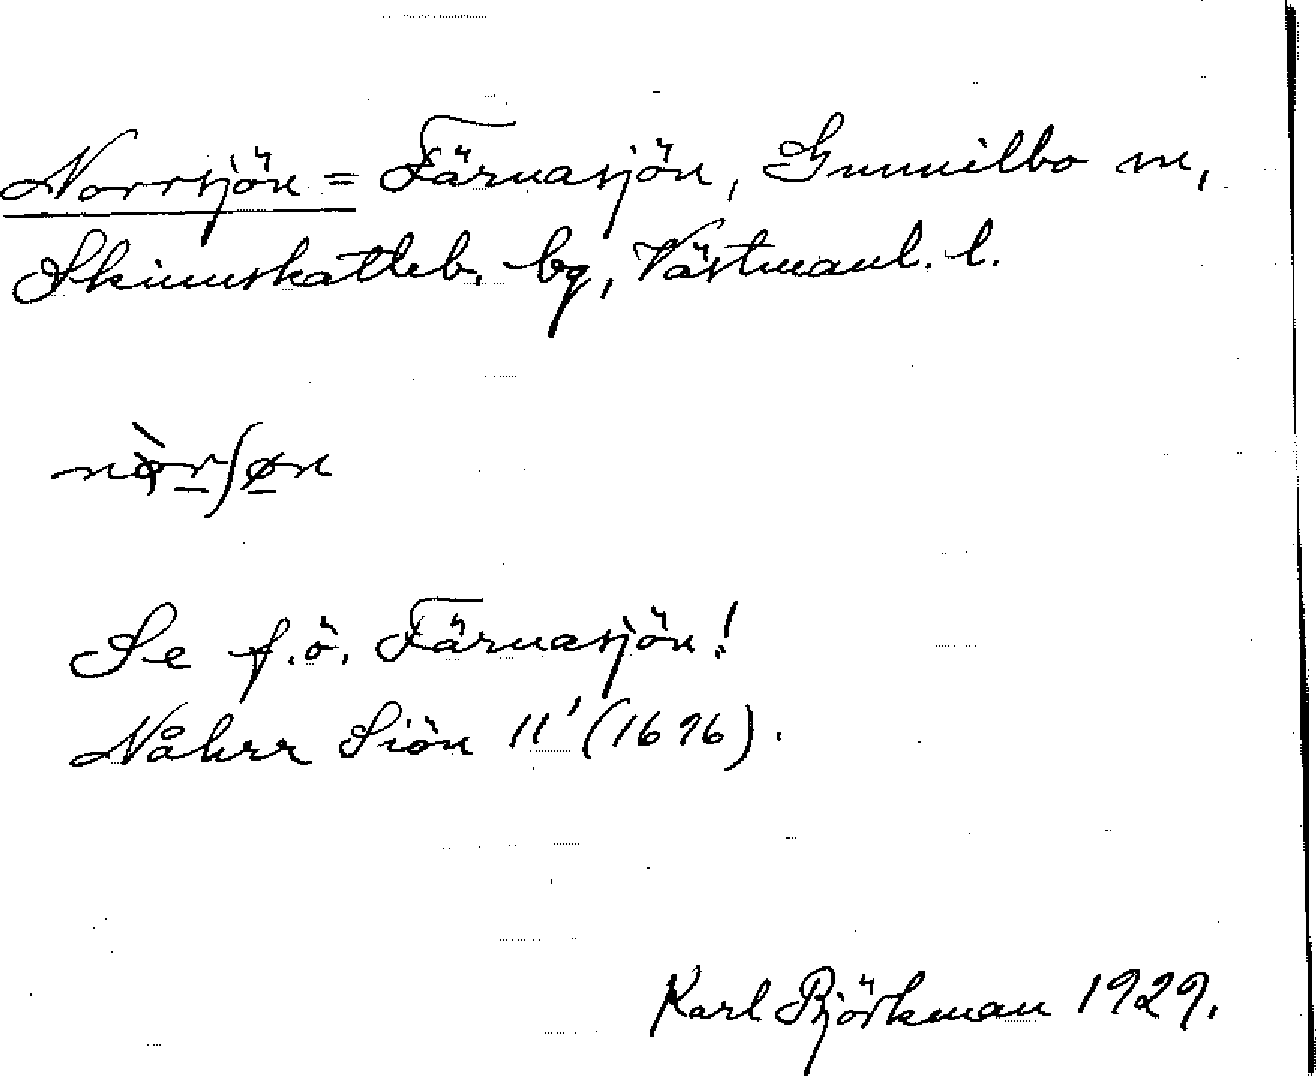 Norrsjön = Färnasjön, Gunnilbo sn,
Skinnskatteb. bg, Västmanl. l.
nòrʃøn
Se f.ö. Färnasjön!
Nåhrr Siön 11' (1696).
Karl Björkman 1929.